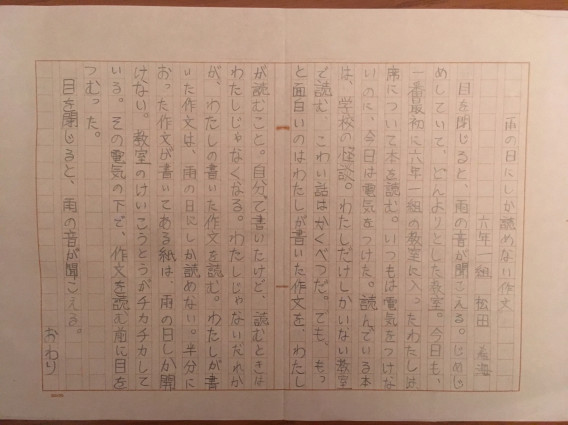 雨の日にしか読めない作文
六年一組 松田
目を閉じると、雨の音が聞こえる。じめじ
めしていて、どんよりとした教室。今日も、
一番最初に六年一組の教室に入ったわたしは
席について本を読む。いつもは電気をつけな
いのに、今日は電気をつけた。読んでいる本
は、学校の怪談。わたしだけしかいない教室
で読む こわい話はかくべつだ。でも、もっ
と面白いのはわたしが書いた作文を、わたし
が読むこと。自分で書いたけど、読むときは
わたしじゃなくなる。わたしじゃないだれか
が、わたしの書いた作文を読む。わたしが書
いた作文は、雨の日にしか読めない。半分に
おった作文が書いてある紙は、雨の日しか開
けない。教室のけいこうとうがチカチカして
いる。その電気の下で、作文を読む前に目を
つむった。
目を閉じると、雨の音が聞こえる。
おわり